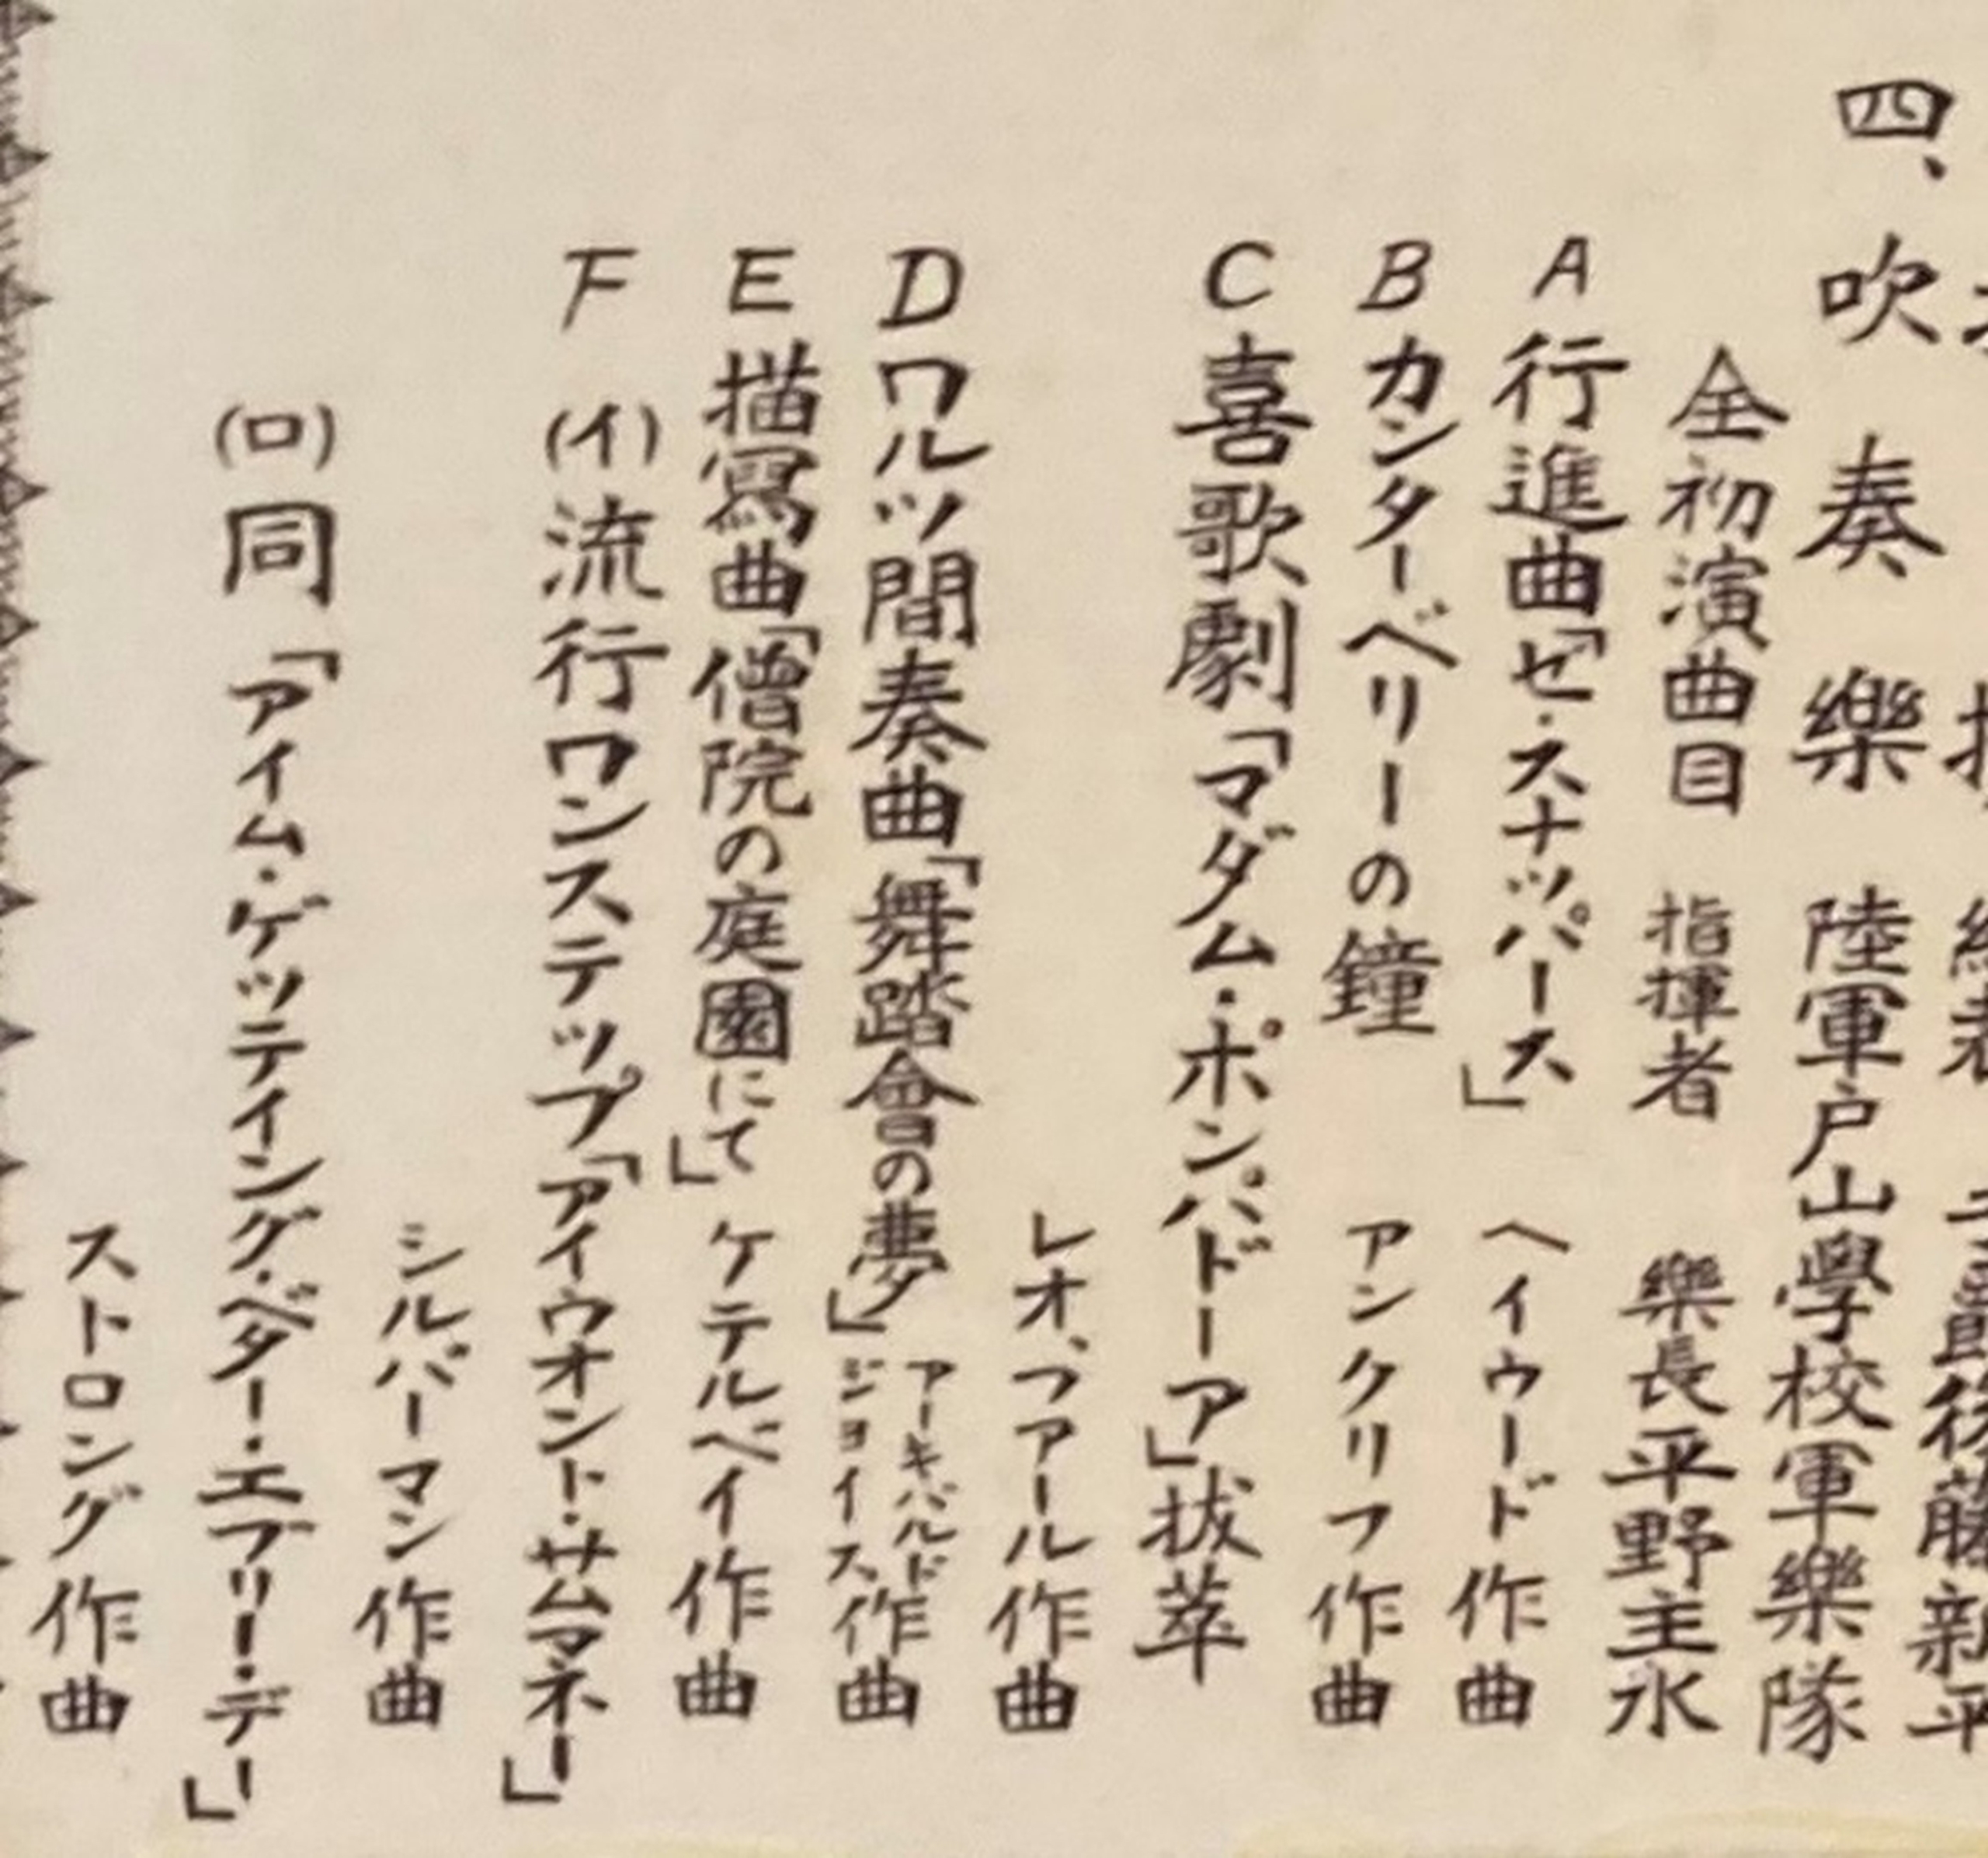 四、吹奏樂 陸軍戸山學校軍樂隊
全初演曲目 指揮者 樂長平野主水
A 行進曲「ゼ・スナッパース」 ヘイウード作曲
B カンターベリーの鐘 アンクリフ作曲
C 喜歌劇「マダム・ポンパドーア」抜萃
レオ、フアール作曲
D ワルツ間奏曲「舞踏會の夢」 アーキバルドジョイス作曲
E 描寫曲「僧院の庭園にて」 ケテルベイ作曲
F (イ)流行ワンステップ「アイウオント・サムマネー」
シルバーマン作曲
(ロ)同「アイム・ゲッティング・ベター・エブリー・デー」
ストロング作曲